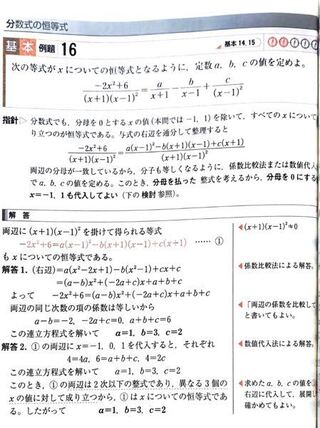 分数式の恒等式
基本 例題 16
基本 14, 15
次の等式が x についての恒等式となるように, 定数 a, b, c の値を定めよ。
(-2x²+6)/((x+1)(x-1)²) = a/(x+1) - b/(x-1) + c/(x-1)²
指針 分数式でも, 分母を0とする x の値(本問では -1, 1)を除いて, すべての x につい
り立つのが恒等式である。与式の右辺を通分して整理すると
(-2x²+6)/((x+1)(x-1)²) = (a(x-1)²-b(x+1)(x-1)+c(x+1))/((x+1)(x-1)²)
両辺の分母が一致しているから, 分子も等しくなるように, 係数比較法または数値代入
で a, b, c の値を定める。このとき, 分母を払った 整式を考えるから, 分母を0にする
x=-1, 1 も代入してよい (下の 検討 参照)。
解答
両辺に (x+1)(x-1)² を掛けて得られる等式
◀(x+1)(x-1)²≠0
-2x²+6=a(x-1)²-b(x+1)(x-1)+c(x+1) …… ①
も x についての恒等式である。
解答 1. (右辺)=a(x²-2x+1)-b(x²-1)+cx+c
◀係数比較法による解答。
=(a-b)x²+(-2a+c)x+a+b+c
よって -2x²+6=(a-b)x²+(-2a+c)x+a+b+c
両辺の同じ次数の項の係数は等しいから
◀「両辺の係数を比較して
a-b=-2, -2a+c=0, a+b+c=6
と書いてもよい。
この連立方程式を解いて a=1, b=3, c=2
解答 2. ① の両辺に x=-1, 0, 1 を代入すると, それぞれ
◀数値代入法による解答。
4=4a, 6=a+b+c, 4=2c
この連立方程式を解いて a=1, b=3, c=2
このとき, ① の両辺は2次以下の整式であり, 異なる3個の
◀求めた a, b, c の値を
x の値に対して成り立つから, ① は x についての恒等式で
右辺に代入して, 展開し
ある。したがって a=1, b=3, c=2
確かめてもよい。